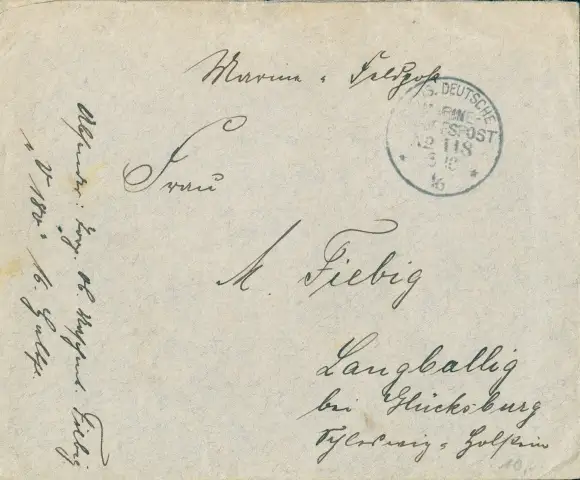 Marine = Feldpost
KAIS. DEUTSCHE
MARINE-
SCHIFFSPOST
No 118
Frau
M. Fiebig
Langballig
bei Glücksburg
Schleswig = Holstein
Absender: Ob. Fiebig
"V 180" 16. Halbfl.
10.